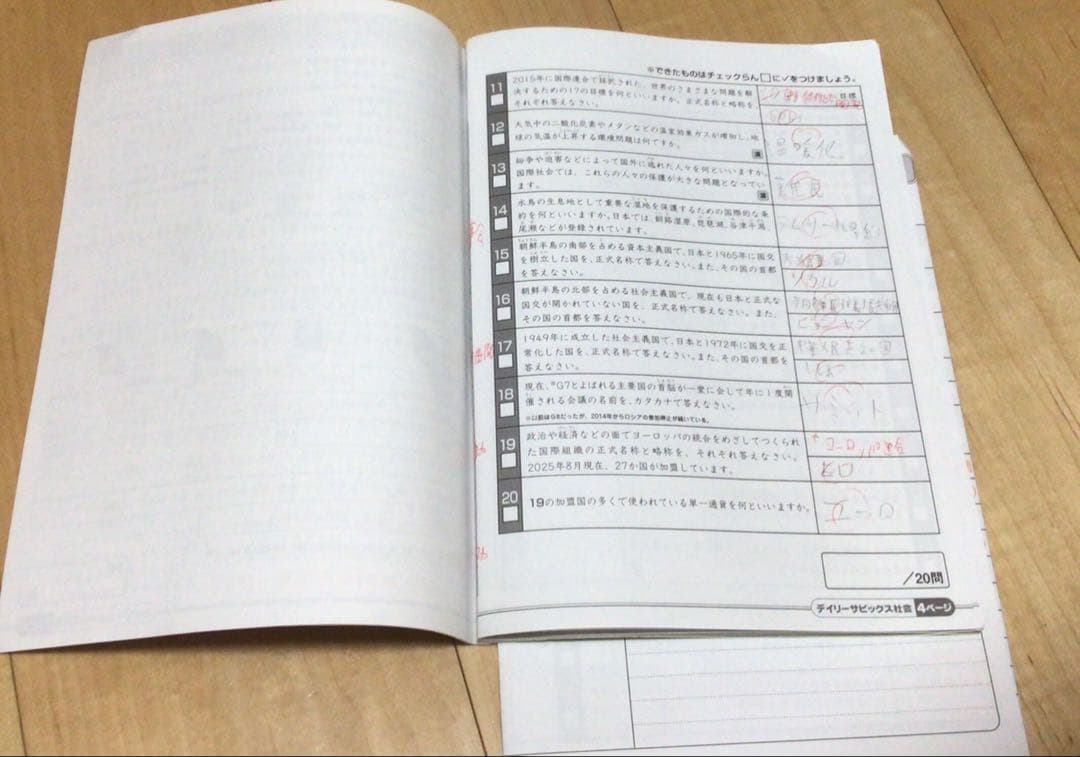 ※できたものはチェックらん□に✓をつけましょう。
11
2015年に国際連合で採択された、世界のさまざまな問題を解
決するための17の目標を何といいますか。正式名称と略称を、
それぞれ答えなさい。
目標
12
大気中の二酸化炭素やメタンなどの温室効果ガスが増加し、地
球の気温が上昇する環境問題は何ですか。
漢
温暖化
13
紛争や迫害などによって国外に逃れた人々を何といいますか。
国際社会では、これらの人々の保護が大きな問題となってい
ます。
漢
14
水鳥の生息地として重要な湿地を保護するための国際的な条
約を何といいますか。日本では、釧路湿原、琵琶湖、谷津干潟、
尾瀬などが登録されています。
15
朝鮮半島の南部を占める資本主義国で、日本と1965年に国交
を樹立した国を、正式名称で答えなさい。また、その国の首都
を答えなさい。
ソウル
16
朝鮮半島の北部を占める社会主義国で、現在も日本と正式な
国交が開かれていない国を、正式名称で答えなさい。また、
その国の首都を答えなさい。
ピョンヤン
17
1949年に成立した社会主義国で、日本と1972年に国交を正
常化した国を、正式名称で答えなさい。また、その国の首都を
答えなさい。
18
現在、※G7とよばれる主要国の首脳が一堂に会して年に1度開
催される会議の名前を、カタカナで答えなさい。
※以前はG8だったが、2014年からロシアの参加停止が続いている。
サミット
19
政治や経済などの面でヨーロッパの統合をめざしてつくられ
た国際組織の正式名称と略称を、それぞれ答えなさい。
2025年8月現在、27か国が加盟しています。
ヨーロッパ連合
20
19の加盟国の多くで使われている単一通貨を何といいますか。
ユーロ
/20問
デイリーサピックス社会 4ページ